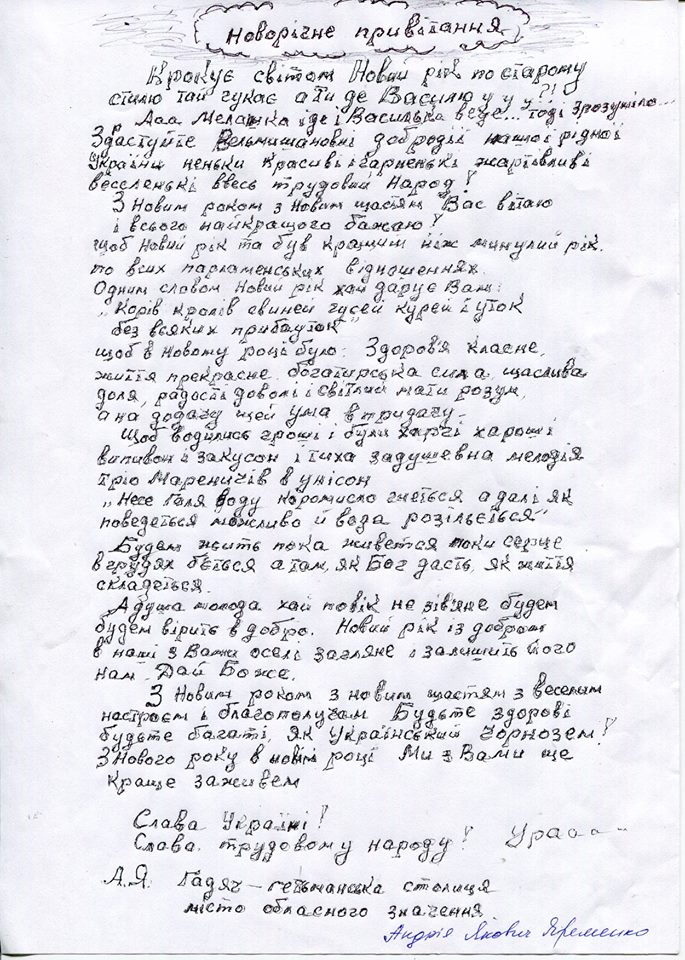 Новорічне привітання
Крокує світом Новий рік по старому
стилю тай гукає а Ти де Василю у у у ?!
Ааа Меланка іде і Василька веде... тоді зрозуміло...
Здастуйте Вельмишановні добродії нашої рідної
України неньки красиві і гарненькі жартівливі
веселенькі ввесь трудовий Народ!
З Новим роком з Новим щастям Вас вітаю
і всього найкращого бажаю!
щоб Новий рік та був кращим ніж минулий рік.
по всіх парламенських відношеннях.
Одним словом Новий рік хай дарує Вам:
„Корів кролів свиней гусей курей і уток
без всяких прибауток"
щоб в Новому році було: Здоров'я класне,
життя прекрасне. богатирська сила, щаслива
доля, радості доволі і світлий мати розум,
а на додачу щей ума втридачу-
Щоб водились гроші і були харчі хароші
випивон і закусон і тиха задушевна мелодія
тріо Мареничів в унісон
„Несе Галя воду коромисло гнеться а далі як
поведеться можливо й вода розільється"
Будем жить пока живется поки серце
в грудях бється а там, як Бог дасть, як життя
складеться.
А душа молода хай повік не зів'яне будем
будем вірить в добро. Новий рік із добром
в наші з Вами оселі загляне і залишить його
нам. Дай Боже.
З Новим роком з новим щастям з веселим
настроєм і благополуччам Будьте здорові
будьте багаті, як Український чорнозем!
З Нового року в новім році Ми з Вами ще
краще заживем
Слава Україні!
Слава трудовому народу! Урааа--
А.Я. Гадяч - гетьманська столиця
місто обласного значення
Андрій Якович Яременко